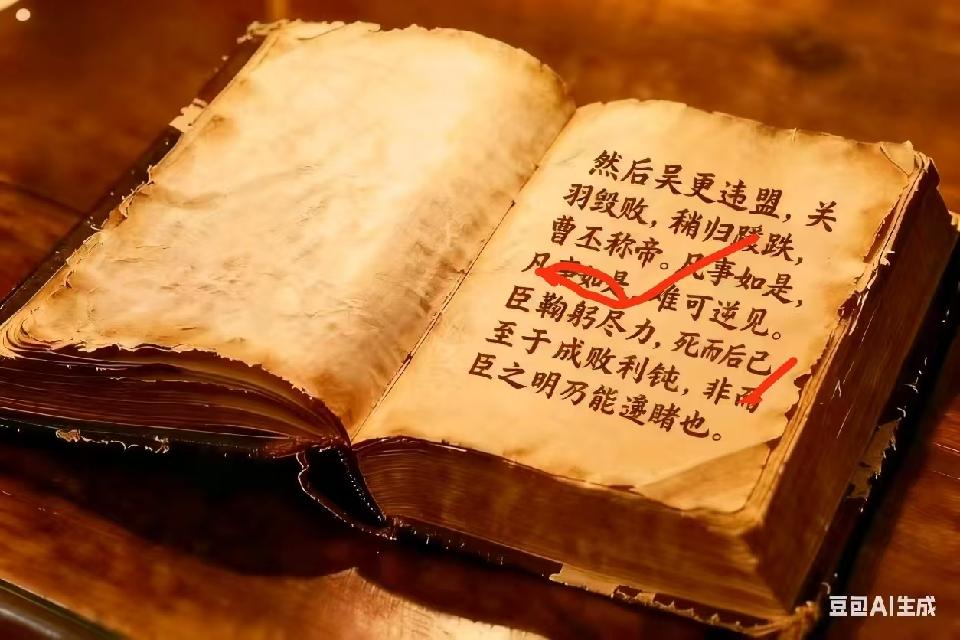 然后吴更违盟，关
羽毁败，稍归跌，
曹丕称帝。凡事如是，
凡事如是 难可逆见。
臣鞠躬尽力，死而后已
至于成败利钝，非而
臣之明乃能睹也。
豆包AI生成